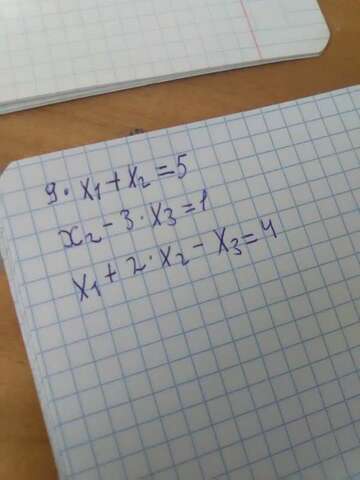 9·x₁+x₂=5
x₂-3·x₃=1
x₁+2·x₂-x₃=4